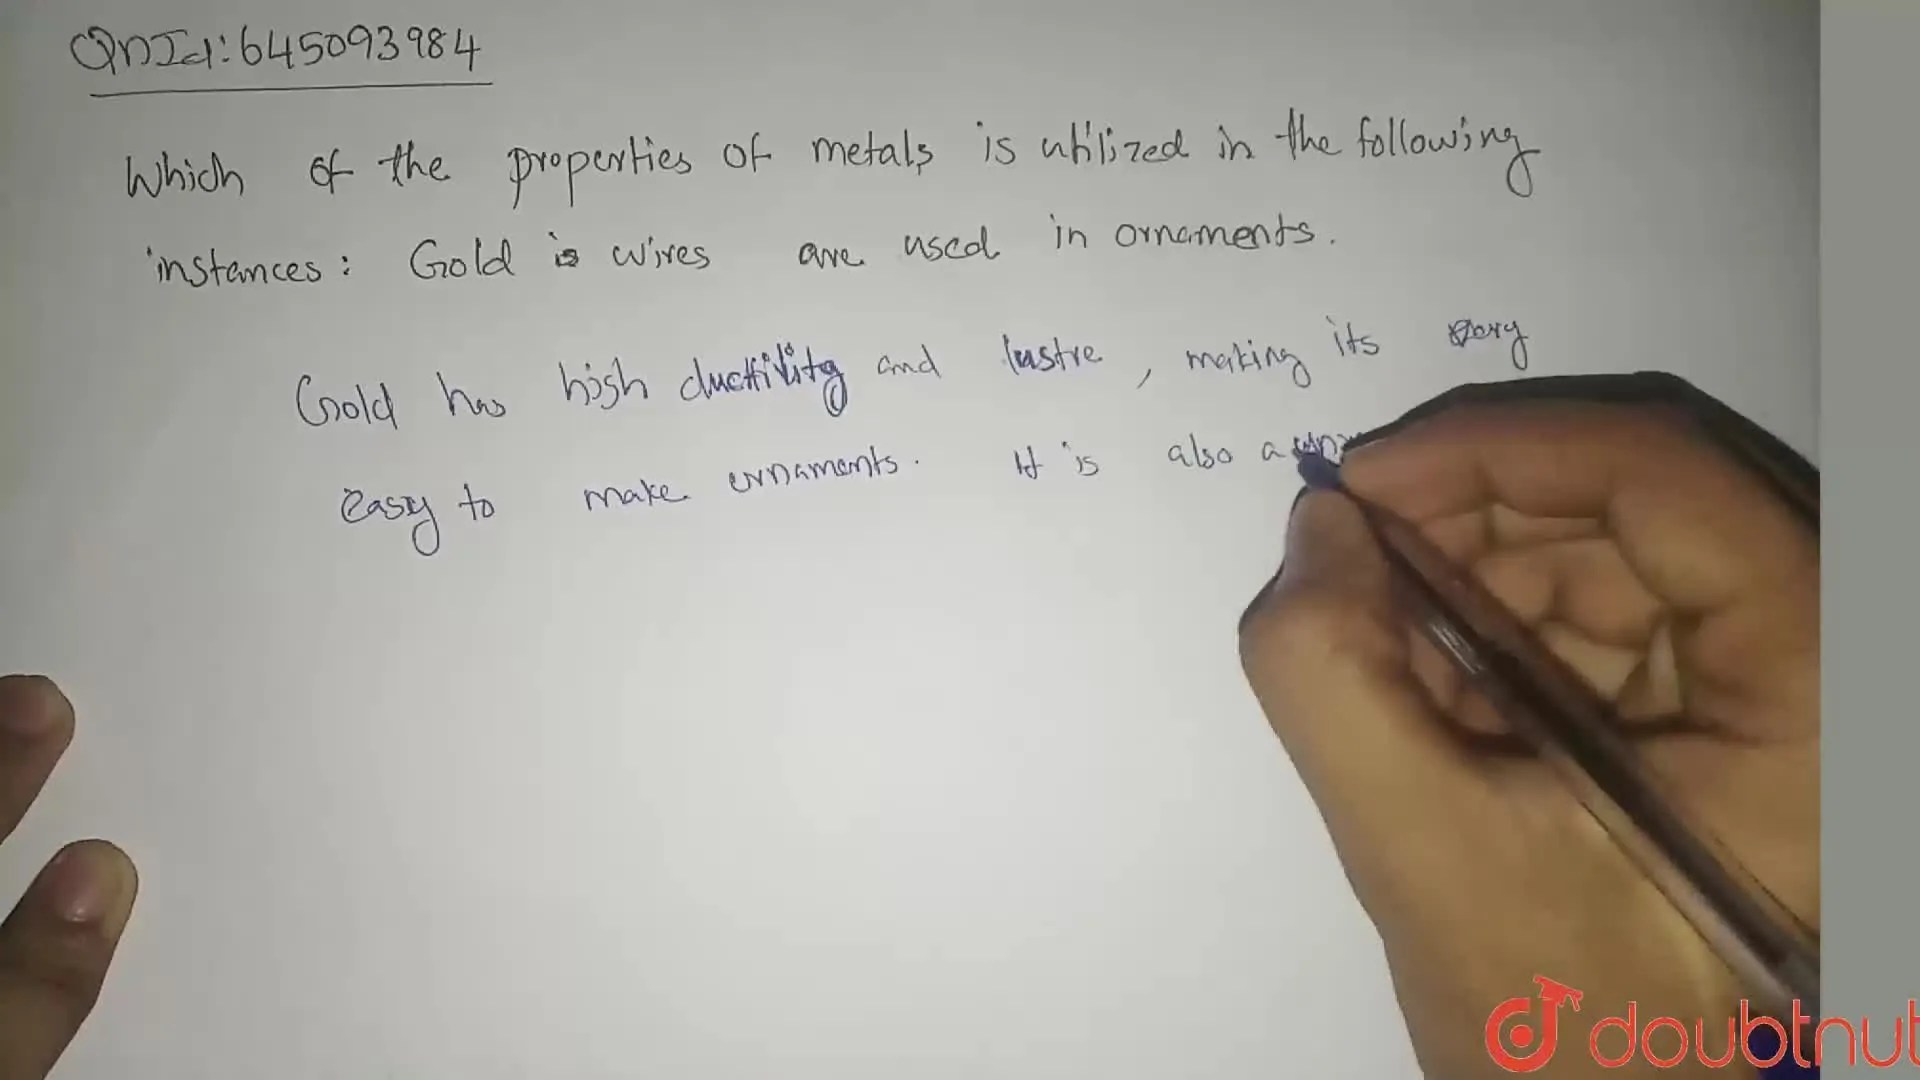 QnId:645093984
Which of the properties of metals is utilized in the following
instances: Gold is wires are used in ornaments.
Gold has high ductility and lustre, making its very
easy to make ornaments. It is also a
doubtnut